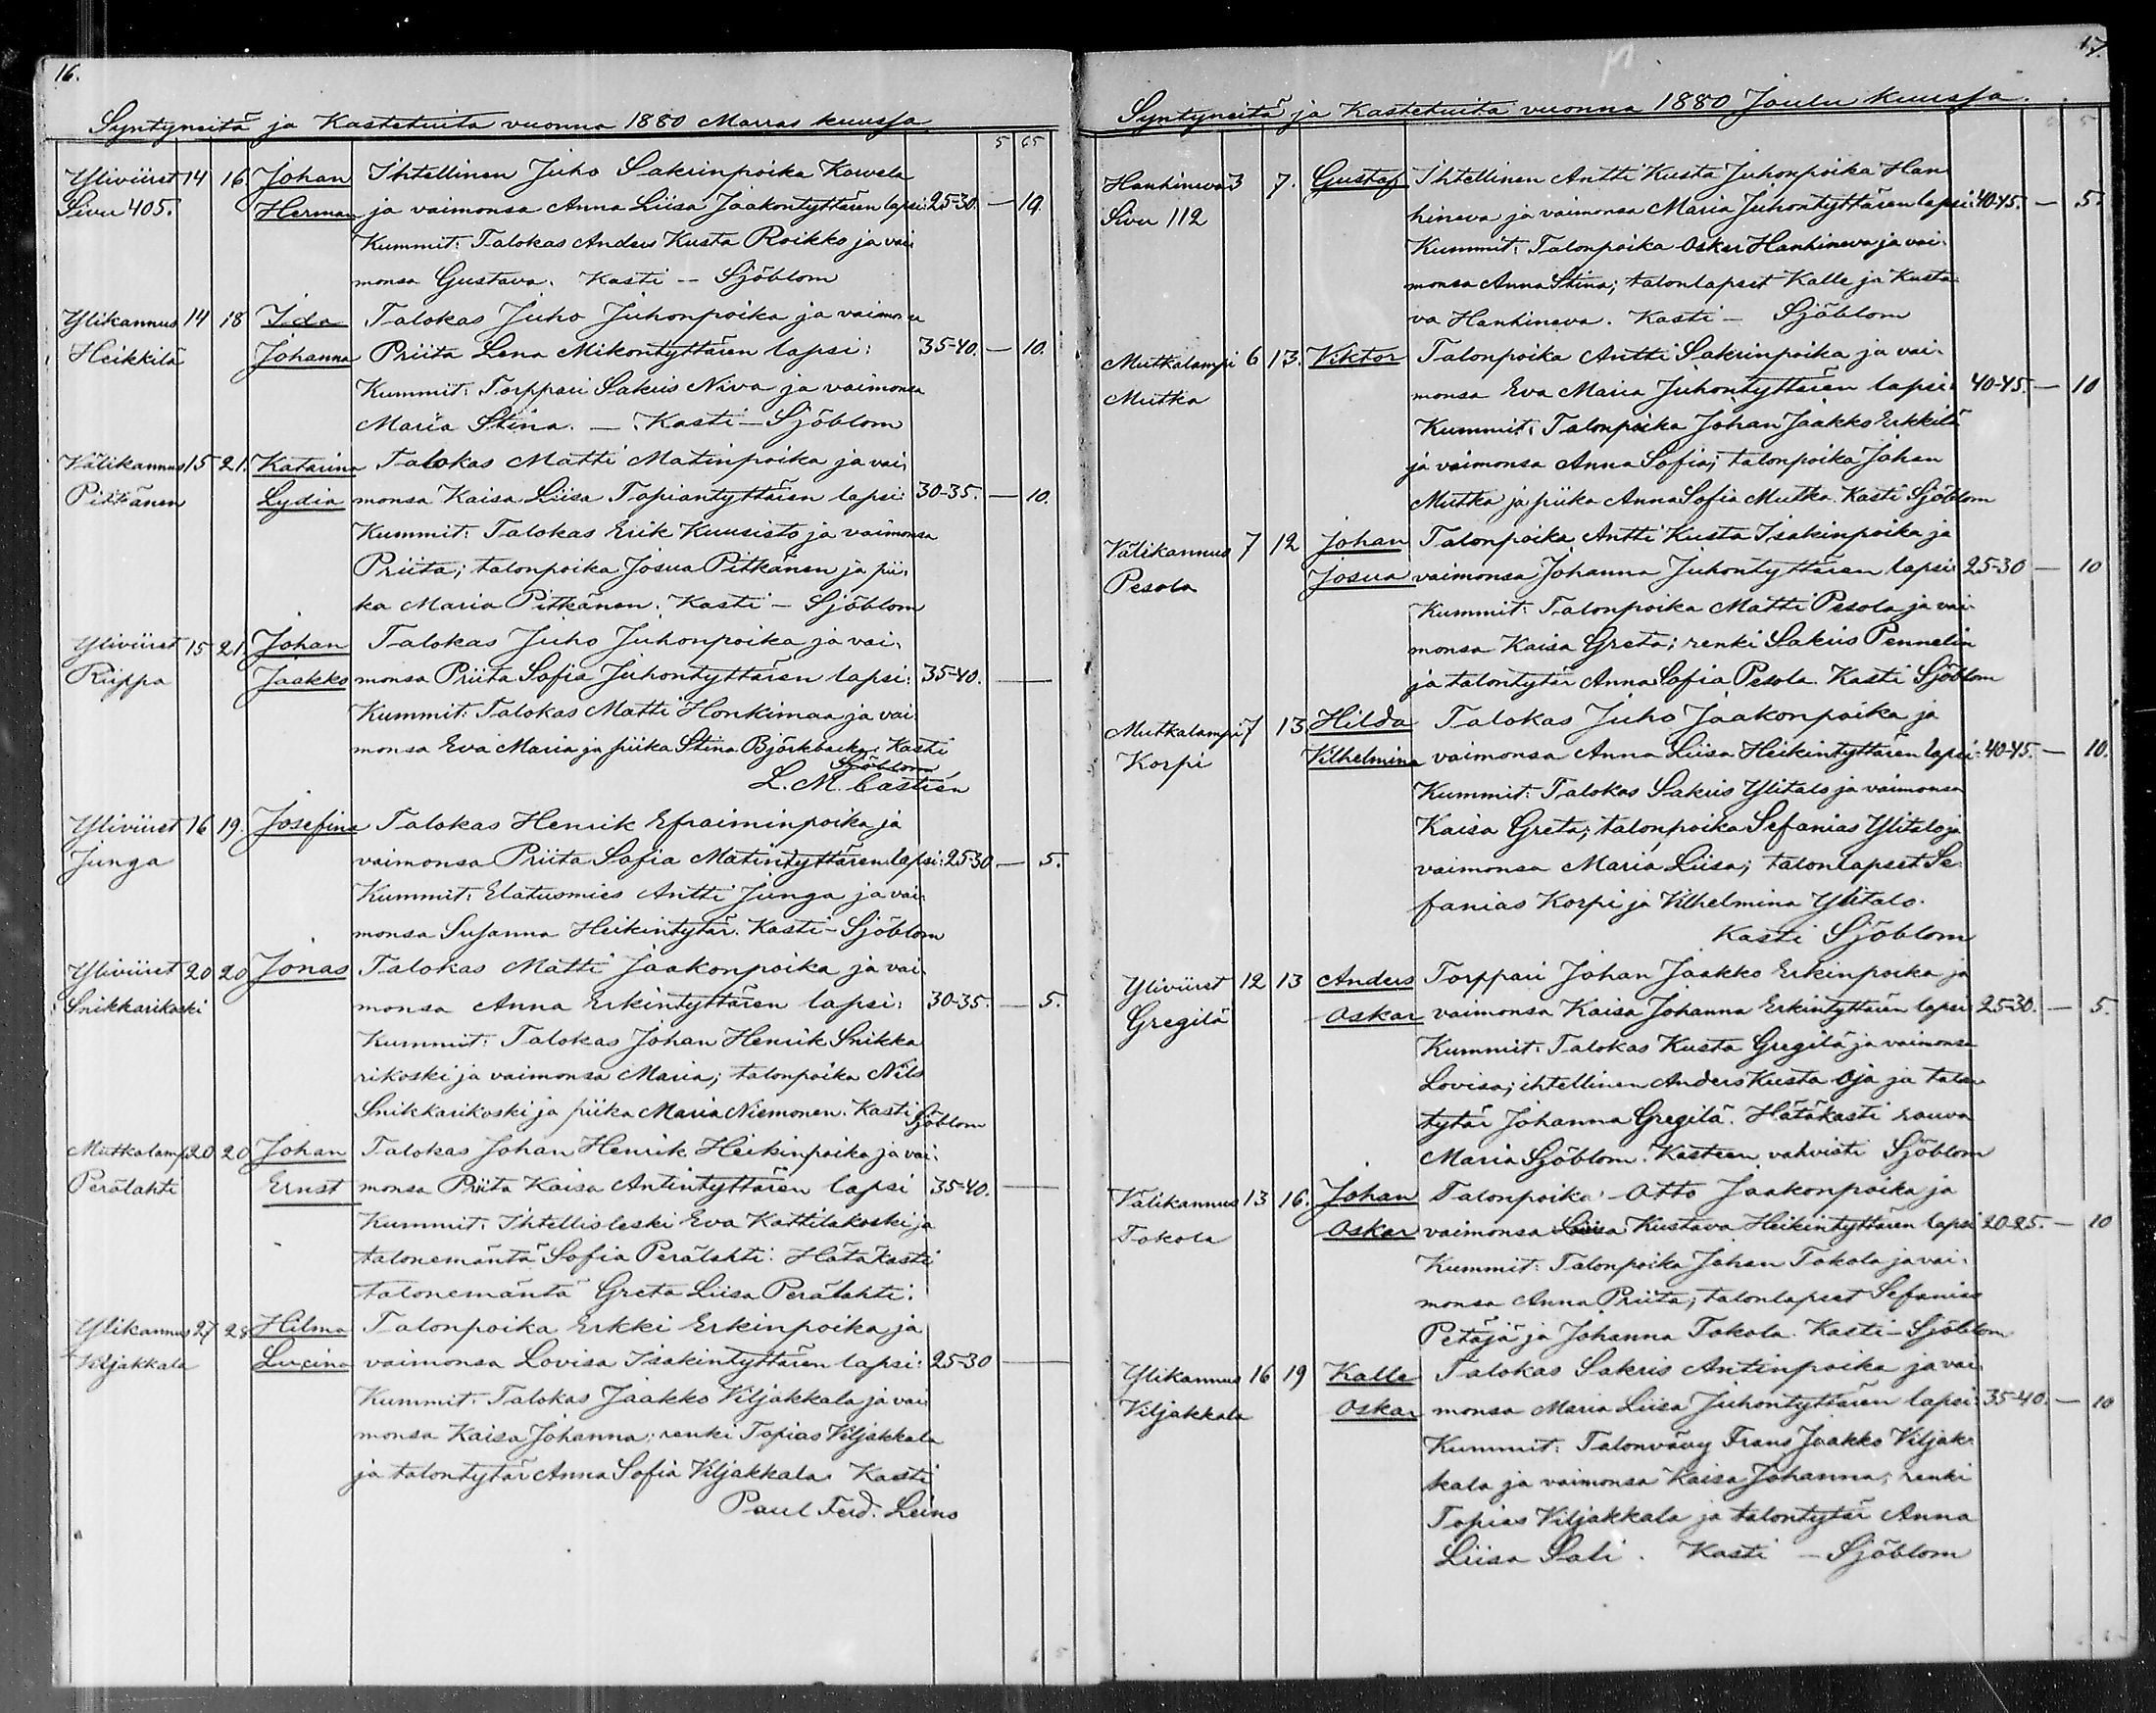 16.
Syntyneitä ja Kastetuita vuonna 1880 Marras kuussa
5 65
Yliviirret 14 16. Johan Ihtellinen Juho Sakrinpoika Kawela
Sivu 405. Herman ja vaimonsa Anna Liisa Jaakontyttären lapsi: 25-30. — 10.
Kummit: Talokas Anders Kusta Roikko ja vai-
monsa Gustava. Kasti -- Sjöblom
Ylikannus 14 18 Ida Talokas Juho Juhonpoika ja vaimonsa
Heikkilä Johanna Priita Lena Mikontyttären lapsi: 35-40. — 10.
Kummit: Torppari Sakris Niva ja vaimonsa
Maria Stina. — Kasti — Sjöblom
Välikannus 15 21. Katarina Talokas Matti Matinpoika ja vai-
Pitkänen Lydia monsa Kaisa Liisa Topiantyttären lapsi: 30-35. — 10.
Kummit: Talokas Erik Kuusisto ja vaimonsa
Priita; talonpoika Josua Pitkänen ja pii-
ka Maria Pitkänen. Kasti — Sjöblom
Yliviirret 15 21. Johan Talokas Juho Juhonpoika ja vai-
Riippa Jaakko monsa Priita Sofia Juhontyttären lapsi: 35-40. —
Kummit: Talokas Matti Honkimaa ja vai-
monsa Eva Maria ja piika Stina Björkbacka. Kasti
Sjöblom
L. M. Castrén
Yliviirret 16 19. Josefina Talokas Henrik Efraiminpoika ja
Junga vaimonsa Priita Sofia Matintyttären lapsi: 25-30 — 5.
Kummit: Elatusmies Antti Junga ja vai-
monsa Susanna Heikintytär. Kasti — Sjöblom
Yliviirret 20 20 Jonas Talokas Matti Jaakonpoika ja vai-
Snikkarikoski monsa Anna Erkintyttären lapsi: 30-35. — 5.
Kummit: Talokas Johan Henrik Snikka-
rikoski ja vaimonsa Maria; talonpoika Nils
Snikkarikoski ja piika Maria Niemonen. Kasti Sjöblom
Mutkalampi 20 20 Johan Talokas Johan Henrik Heikinpoika ja vai-
Perälahti Ernst monsa Priita Kaisa Antintyttären lapsi 35-40. —
Kummit: Ihtellisleski Eva Kattilakoski ja
talonemäntä Sofia Perälahti. Hätäkasti
talonemäntä Greta Liisa Perälahti.
Ylikannus 27 28 Hilma Talonpoika Erkki Erkinpoika ja
Viljakkala Lucina vaimonsa Lovisa Isakintyttären lapsi: 25-30 —
Kummit: Talokas Jaakko Viljakkala ja vai-
monsa Kaisa Johanna; renki Topias Viljakkala
ja talontytär Anna Sofia Viljakkala. Kasti
Paul Ferd. Leino
17.
Syntyneitä ja Kastetuita vuonna 1880 Joulu kuussa.
5
Hanhineva 3 7. Gustaf Ihtellinen Antti Kusta Juhonpoika Han-
Sivu 112 hineva ja vaimonsa Maria Juhontyttären lapsi: 40-45. — 5.
Kummit: Talonpoika Oskar Hanhineva ja vai-
monsa Anna Stina; talonlapset Kalle ja Kusta-
va Hanhineva. Kasti — Sjöblom
Mutkalampi 6 13. Viktor Talonpoika Antti Sakrinpoika ja vai-
Mutka monsa Eva Maria Juhontyttären lapsi: 40-45. — 10
Kummit: Talonpoika Johan Jaakko Erkkilä
ja vaimonsa Anna Sofia; talonpoika Johan
Mutka ja piika Anna Sofia Mutka. Kasti Sjöblom
Välikannus 7 12 Johan Talonpoika Antti Kusta Isakinpoika ja
Pesola Josua vaimonsa Johanna Juhontyttären lapsi 25-30 — 10
Kummit: Talonpoika Matti Pesola ja vai-
monsa Kaisa Greta; renki Sakris Pennelin
ja talontytär Anna Sofia Pesola. Kasti Sjöblom
Mutkalampi 7 13 Hilda Talokas Juho Jaakonpoika ja
Korpi Vilhelmina vaimonsa Anna Liisa Heikintyttären lapsi: 40-45. — 10.
Kummit: Talokas Sakris Ylitalo ja vaimonsa
Kaisa Greta; talonpoika Sefanias Ylitalo ja
vaimonsa Maria Liisa; talonlapset Se-
fanias Korpi ja Vilhelmina Ylitalo.
Kasti Sjöblom
Yliviirret 12 13 Anders Torppari Johan Jaakko Erkinpoika ja
Gregilä Oskar vaimonsa Kaisa Johanna Erkintyttären lapsi 25-30. — 5.
Kummit: Talokas Kusta Gregilä ja vaimonsa
Lovisa; ihtellinen Anders Kusta Oja ja talon-
tytär Johanna Gregilä. Hätäkasti rouva
Maria Sjöblom. Kasteen vahvisti Sjöblom
Välikannus 13 16. Johan Talonpoika Otto Jaakonpoika ja
Tokola Oskar vaimonsa Liisa Kustava Heikintyttären lapsi 20-25. — 10
Kummit: Talonpoika Johan Tokola ja vai-
monsa Anna Priita; talonlapset Sefanias
Petäjä ja Johanna Tokola. Kasti — Sjöblom
Ylikannus 16 19 Kalle Talokas Sakris Antinpoika ja vai-
Viljakkala Oskar monsa Maria Liisa Juhontyttären lapsi: 35-40. — 10
Kummit: Talonvävy Frans Jaakko Viljak-
kala ja vaimonsa Kaisa Johanna; renki
Topias Viljakkala ja talontytär Anna
Liisa Sali. Kasti — Sjöblom